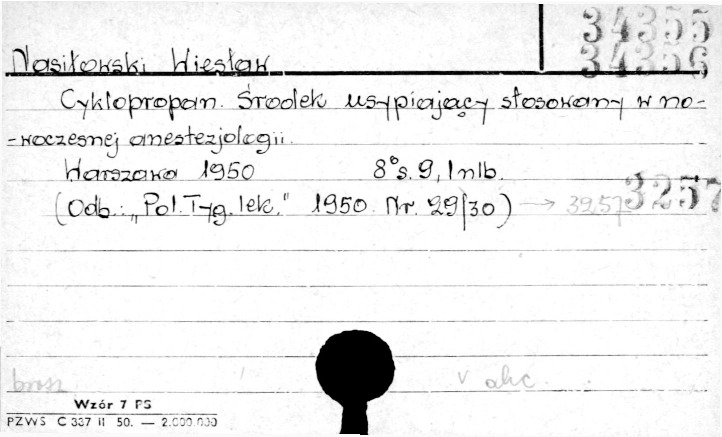 34355
34356
Nasiłowski Wiesław
Cyklopropan. Środek usypiający stosowany w no-
-woczesnej anestezjologii.
Warszawa 1950 8° s. 9, 1 nlb.
(Odb.: „Pol. Tyg. lek." 1950. Nr. 29/30) → 39257 3257
brosz. v akc.
Wzór 7 PS
PZWS C 337 II 50. — 2.000.000